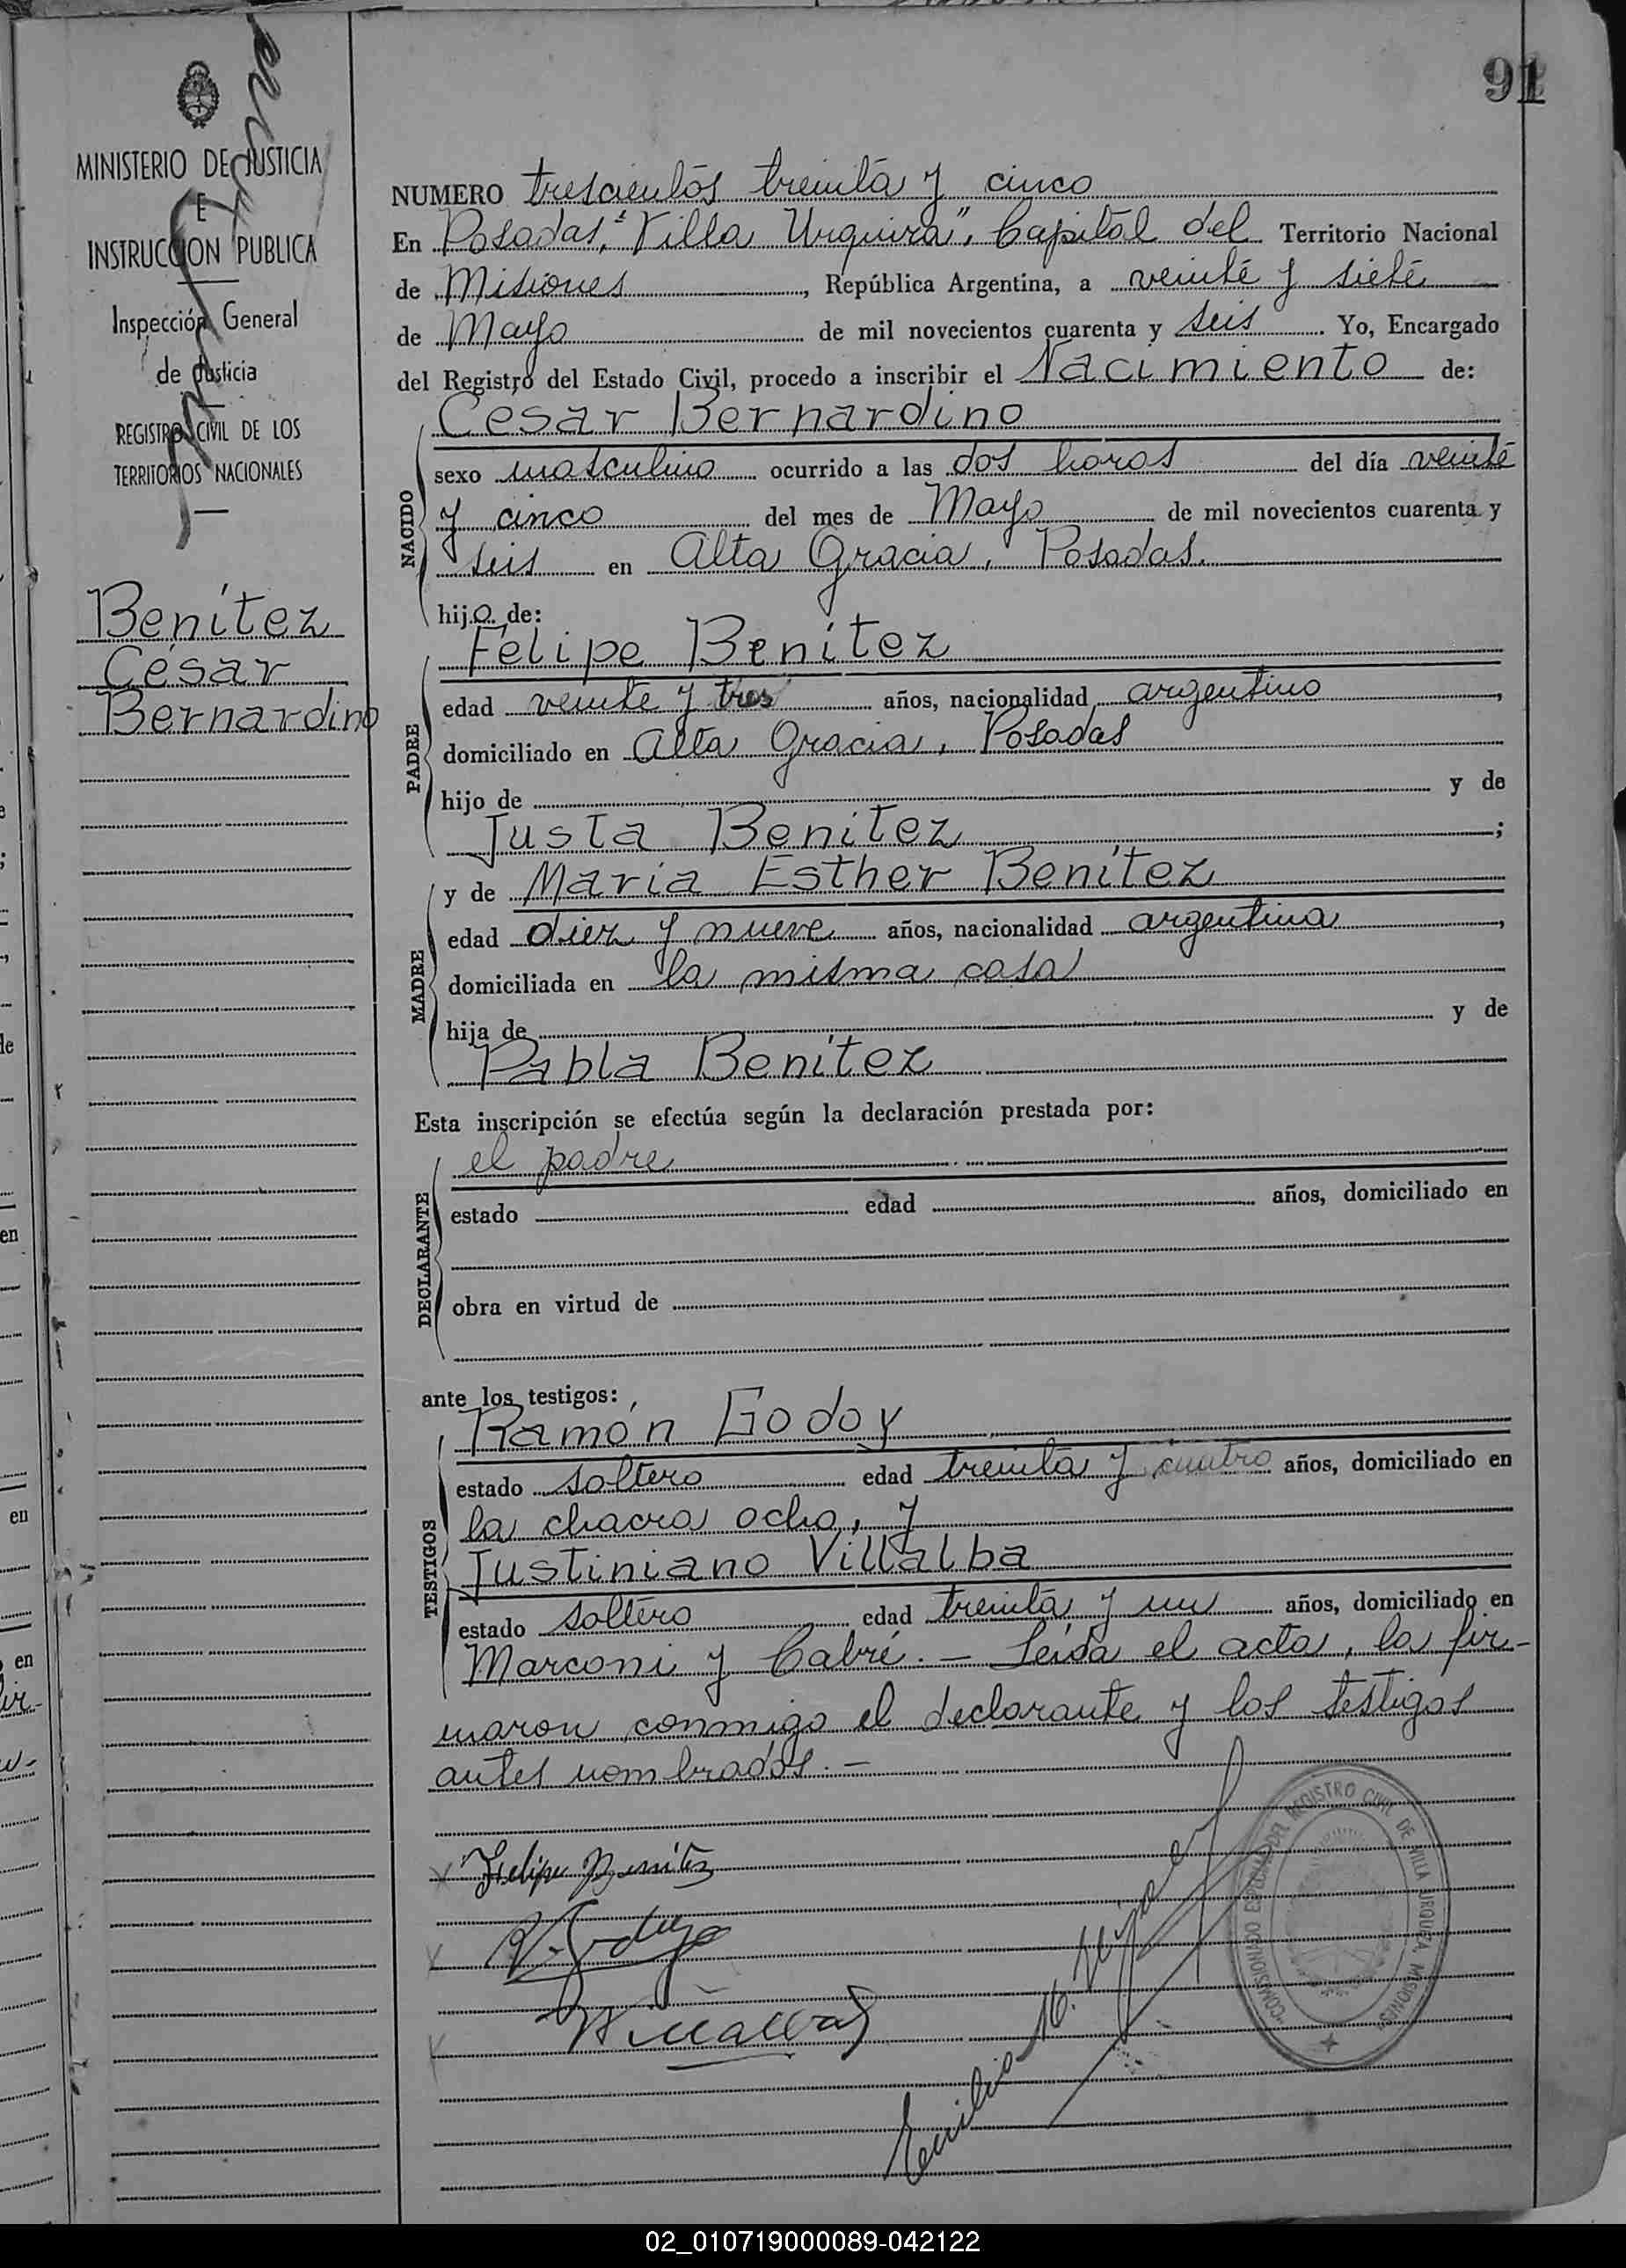 91
MINISTERIO DE JUSTICIA
E
INSTRUCCION PUBLICA
Inspección General
de Justicia
REGISTRO CIVIL DE LOS
TERRITORIOS NACIONALES
Benítez
César
Bernardino
NUMERO trescientos treinta y cinco
En Posadas, "Villa Urquiza", Capital del Territorio Nacional
de Misiones, República Argentina, a veinte y siete
de Mayo de mil novecientos cuarenta y seis. Yo, Encargado
del Registro del Estado Civil, procedo a inscribir el Nacimiento de:
César Bernardino
NACIDO
sexo masculino ocurrido a las dos horas del día veinte
y cinco del mes de Mayo de mil novecientos cuarenta y
seis en Alta Gracia, Posadas.
hijo de:
Felipe Benítez
PADRE
edad veinte y tres años, nacionalidad argentino,
domiciliado en Alta Gracia, Posadas
hijo de y de
Justa Benítez;
y de María Esther Benítez
MADRE
edad diez y nueve años, nacionalidad argentina,
domiciliada en la misma casa
hija de y de
Pabla Benítez
Esta inscripción se efectúa según la declaración prestada por:
el padre
DECLARANTE
estado edad años, domiciliado en
obra en virtud de
ante los testigos:
Ramón Godoy
TESTIGOS
estado soltero edad treinta y cuatro años, domiciliado en
la chacra ocho, y
Justiniano Villalba
estado soltero edad treinta y un años, domiciliado en
Marconi y Cabré. - Leída el acta, la fir-
maron conmigo el declarante y los testigos
antes nombrados. -
Felipe Benitez
R. Godoy
Villalba
Emilio M.
COMISIONADO EMPADRONADOR REGISTRO CIVIL DE VILLA URQUIZA MISIONES
02_010719000089-042122